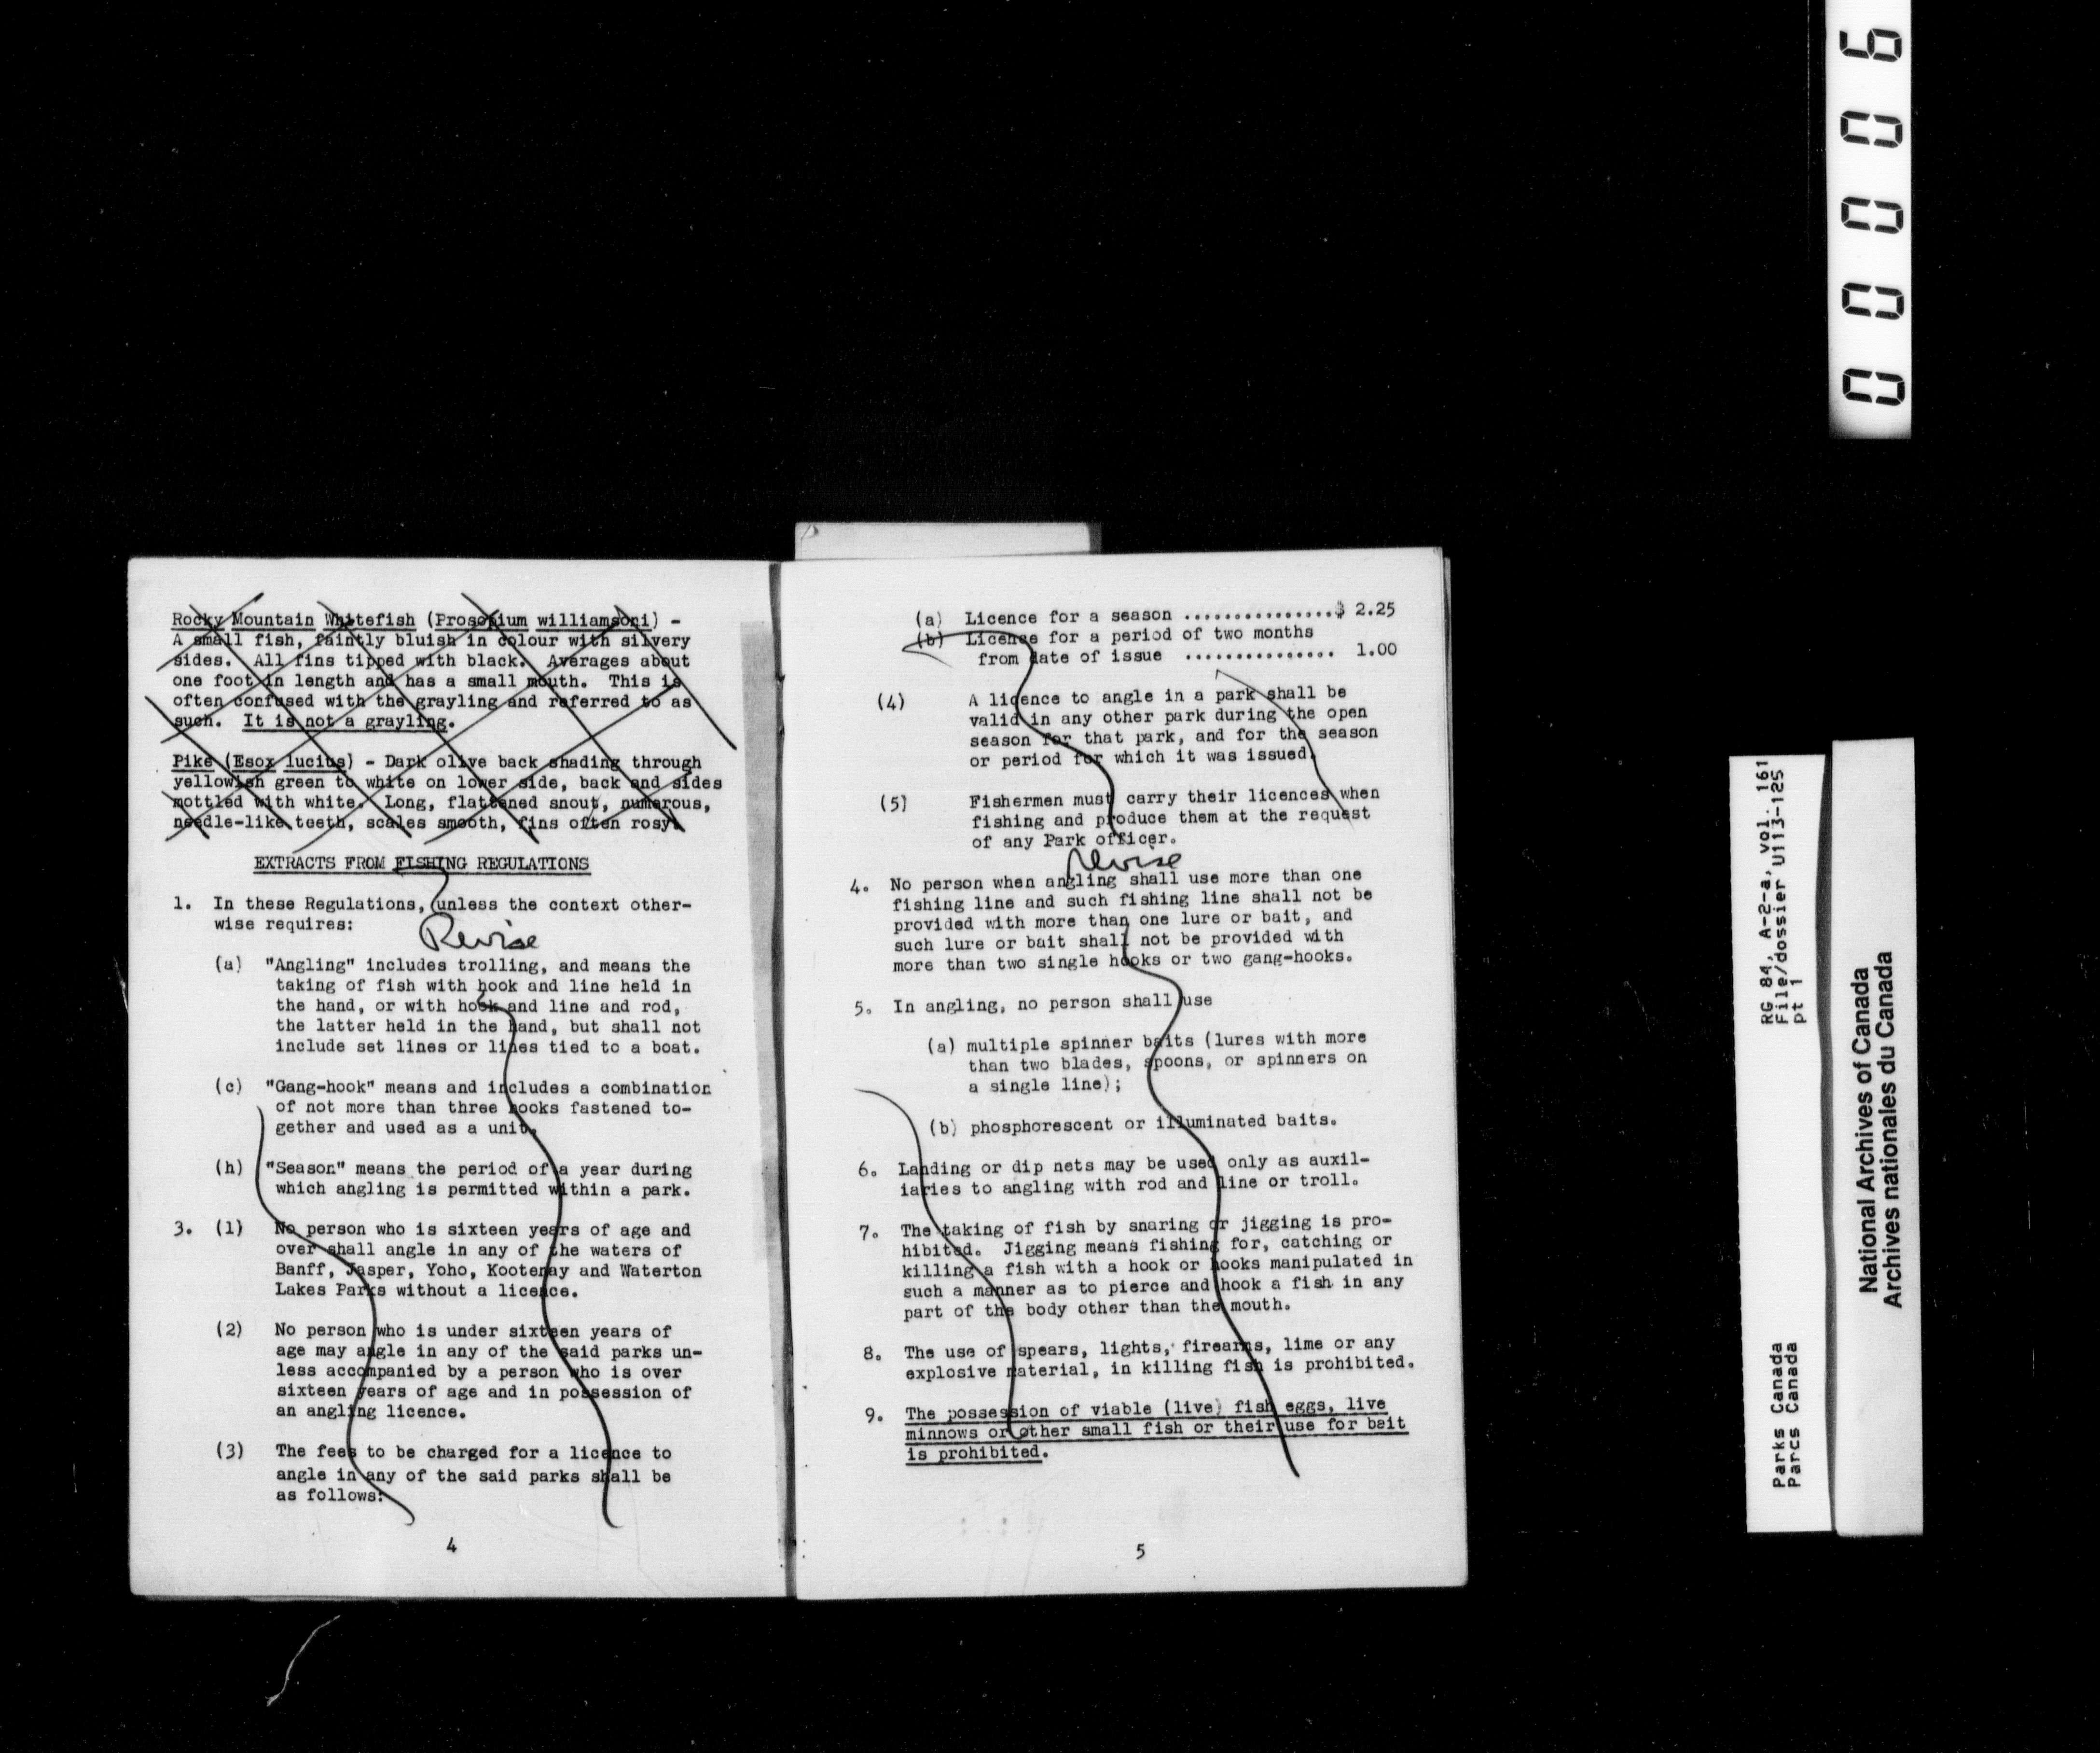 Rocky Mountain Whitefish (Prosopium williamsoni) -
A small fish, faintly bluish in colour with silvery
sides. All fins tipped with black. Averages about
one foot in length and has a small mouth. This is
often confused with the grayling and referred to as
such. It is not a grayling.
Pike (Esox lucius) - Dark olive back shading through
yellowish green to white on lower side, back and sides
mottled with white. Long, flattened snout, numerous,
needle-like teeth, scales smooth, fins often rosy.
EXTRACTS FROM FISHING REGULATIONS
1. In these Regulations, unless the context other-
wise requires:
Revise
(a) "Angling" includes trolling, and means the
taking of fish with hook and line held in
the hand, or with hook and line and rod,
the latter held in the hand, but shall not
include set lines or lines tied to a boat.
(c) "Gang-hook" means and includes a combination
of not more than three hooks fastened to-
gether and used as a unit.
(h) "Season" means the period of a year during
which angling is permitted within a park.
3. (1) No person who is sixteen years of age and
over shall angle in any of the waters of
Banff, Jasper, Yoho, Kootenay and Waterton
Lakes Parks without a licence.
(2) No person who is under sixteen years of
age may angle in any of the said parks un-
less accompanied by a person who is over
sixteen years of age and in possession of
an angling licence.
(3) The fees to be charged for a licence to
angle in any of the said parks shall be
as follows:
4
(a) Licence for a season ...............$ 2.25
(b) Licence for a period of two months
from date of issue ............... 1.00
(4) A licence to angle in a park shall be
valid in any other park during the open
season for that park, and for the season
or period for which it was issued.
(5) Fishermen must carry their licences when
fishing and produce them at the request
of any Park officer.
Revise
4. No person when angling shall use more than one
fishing line and such fishing line shall not be
provided with more than one lure or bait, and
such lure or bait shall not be provided with
more than two single hooks or two gang-hooks.
5. In angling, no person shall use
(a) multiple spinner baits (lures with more
than two blades, spoons, or spinners on
a single line);
(b) phosphorescent or illuminated baits.
6. Landing or dip nets may be used only as auxil-
iaries to angling with rod and line or troll.
7. The taking of fish by snaring or jigging is pro-
hibited. Jigging means fishing for, catching or
killing a fish with a hook or hooks manipulated in
such a manner as to pierce and hook a fish in any
part of the body other than the mouth.
8. The use of spears, lights, firearms, lime or any
explosive material, in killing fish is prohibited.
9. The possession of viable (live) fish eggs, live
minnows or other small fish or their use for bait
is prohibited.
5
00006
RG 84, A-2-a, vol. 161
File/dossier U113-125
pt 1
Parks Canada
Parcs Canada
National Archives of Canada
Archives nationales du Canada